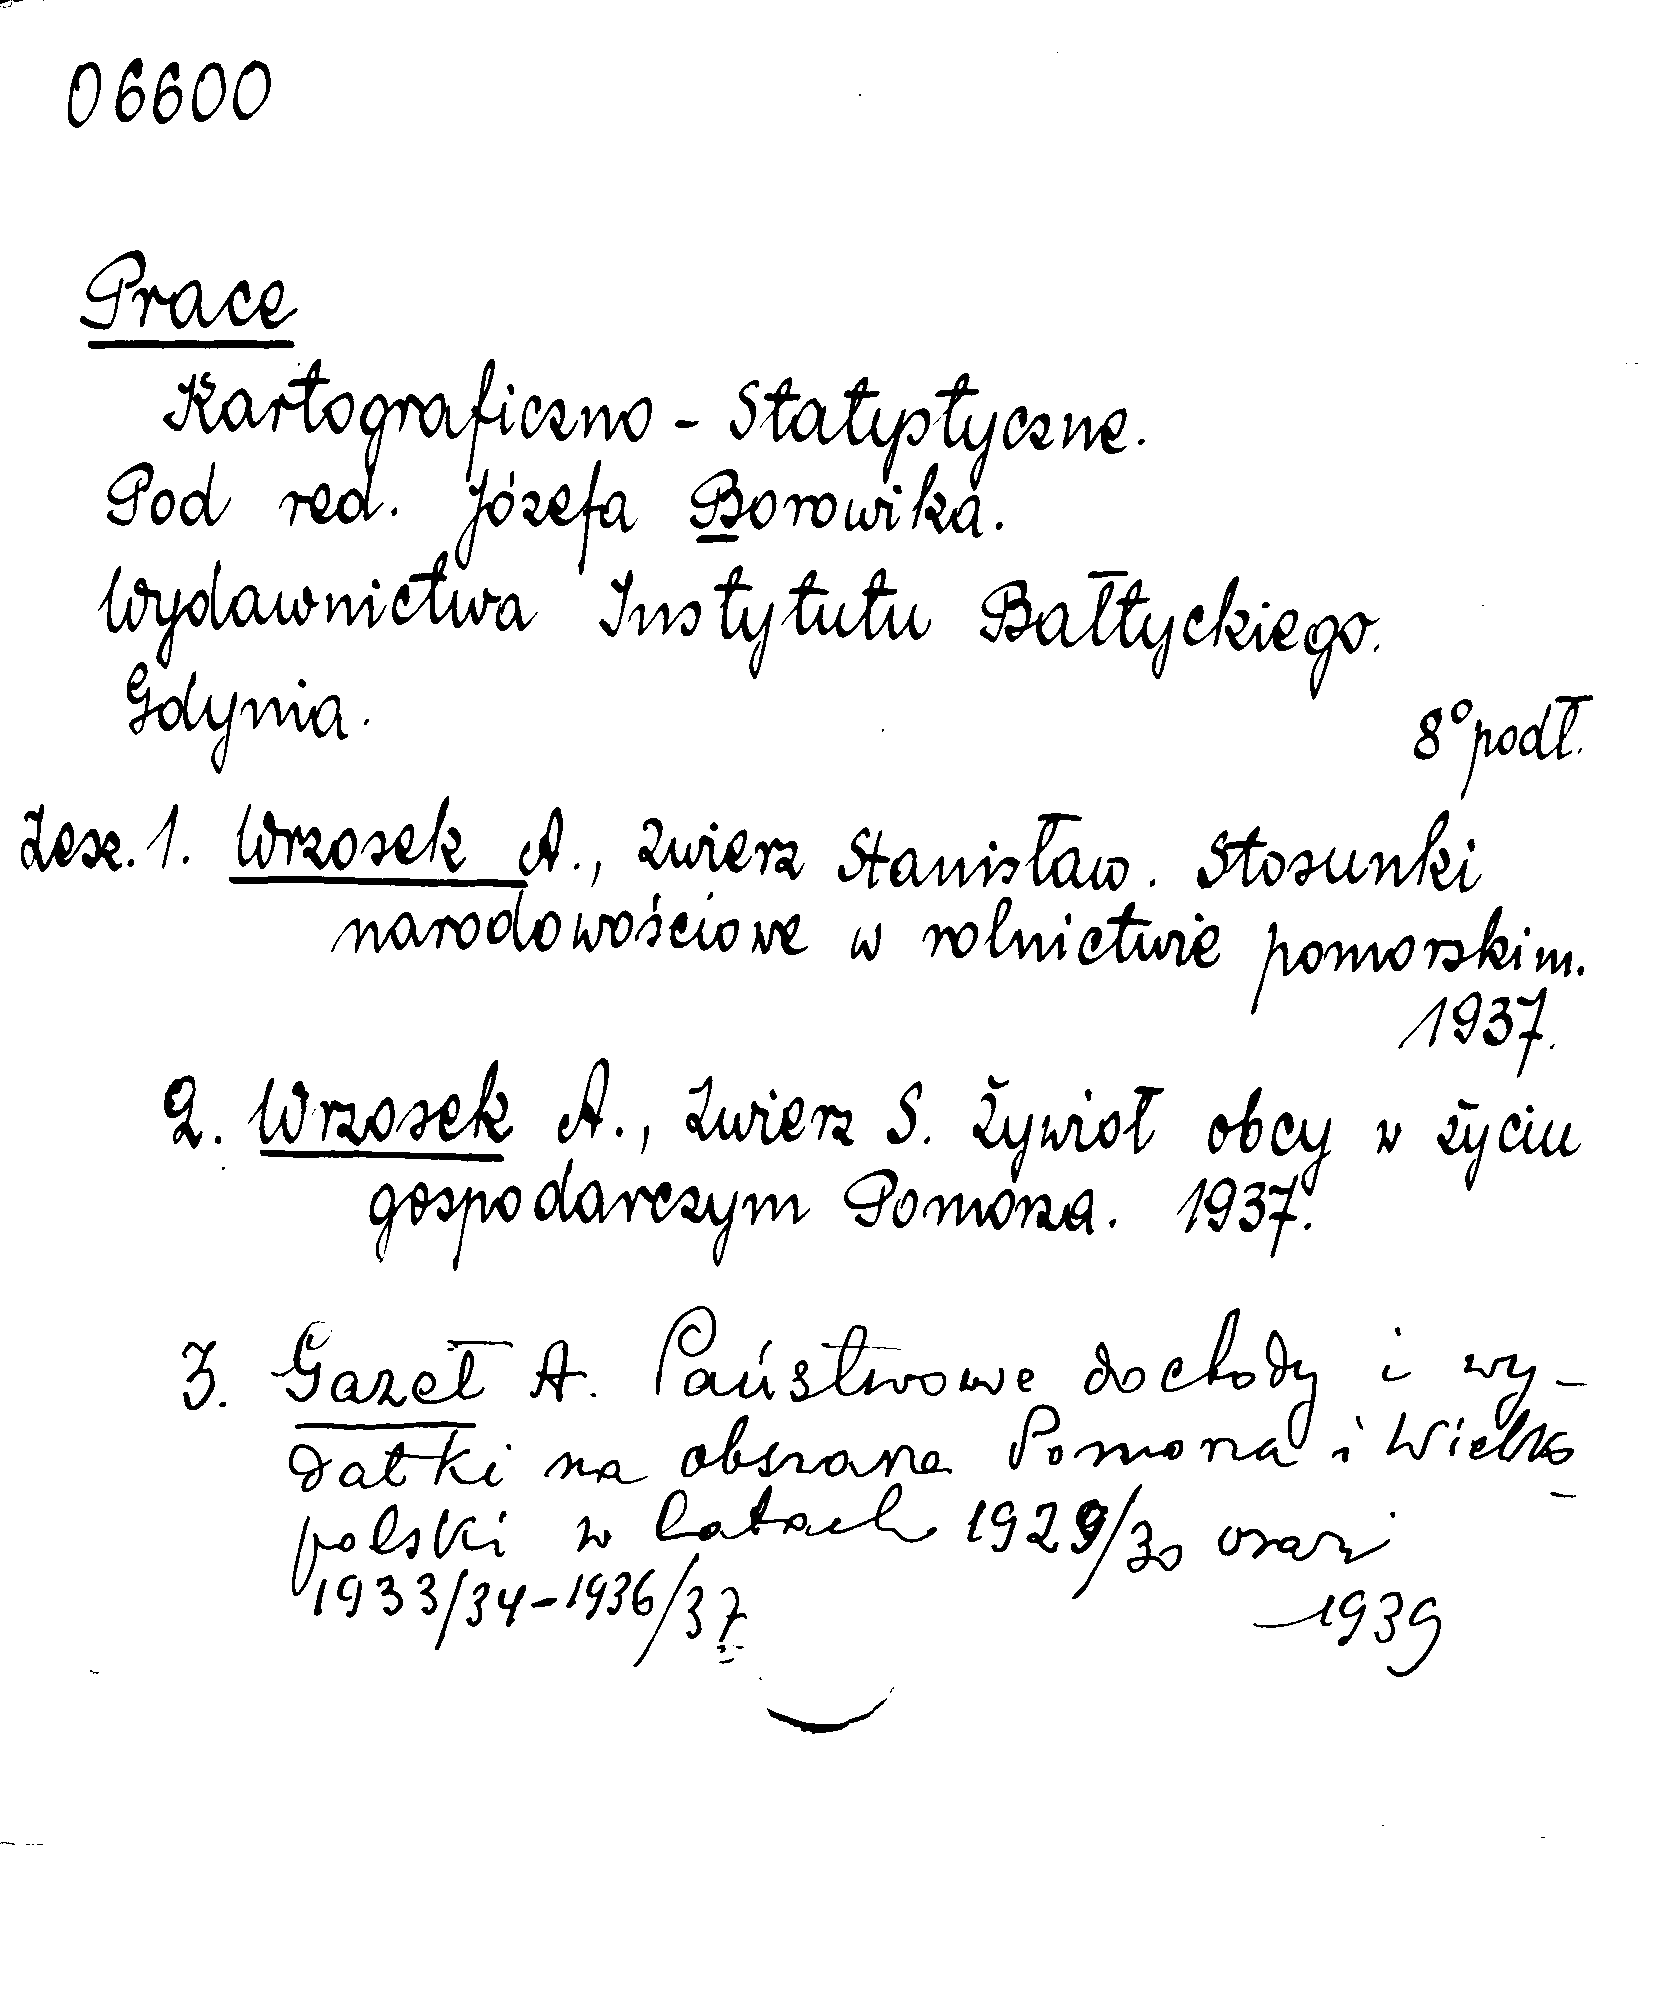 06600
Prace
Kartograficzno - Statystyczne.
Pod red. Józefa Borowika.
Wydawnictwa Instytutu Bałtyckiego.
Gdynia.
8° podł.
Zesz. 1. Wrzosek A., Zwierz Stanisław. Stosunki
narodowościowe w rolnictwie pomorskim.
1937.
2. Wrzosek A., Zwierz S. Żywioł obcy w życiu
gospodarczym Pomorza. 1937.
3. Gazeł A. Państwowe dochody i wy-
datki na obszarze Pomorza i Wielko-
polski w latach 1929/30 oraz
1933/34-1936/37
1939